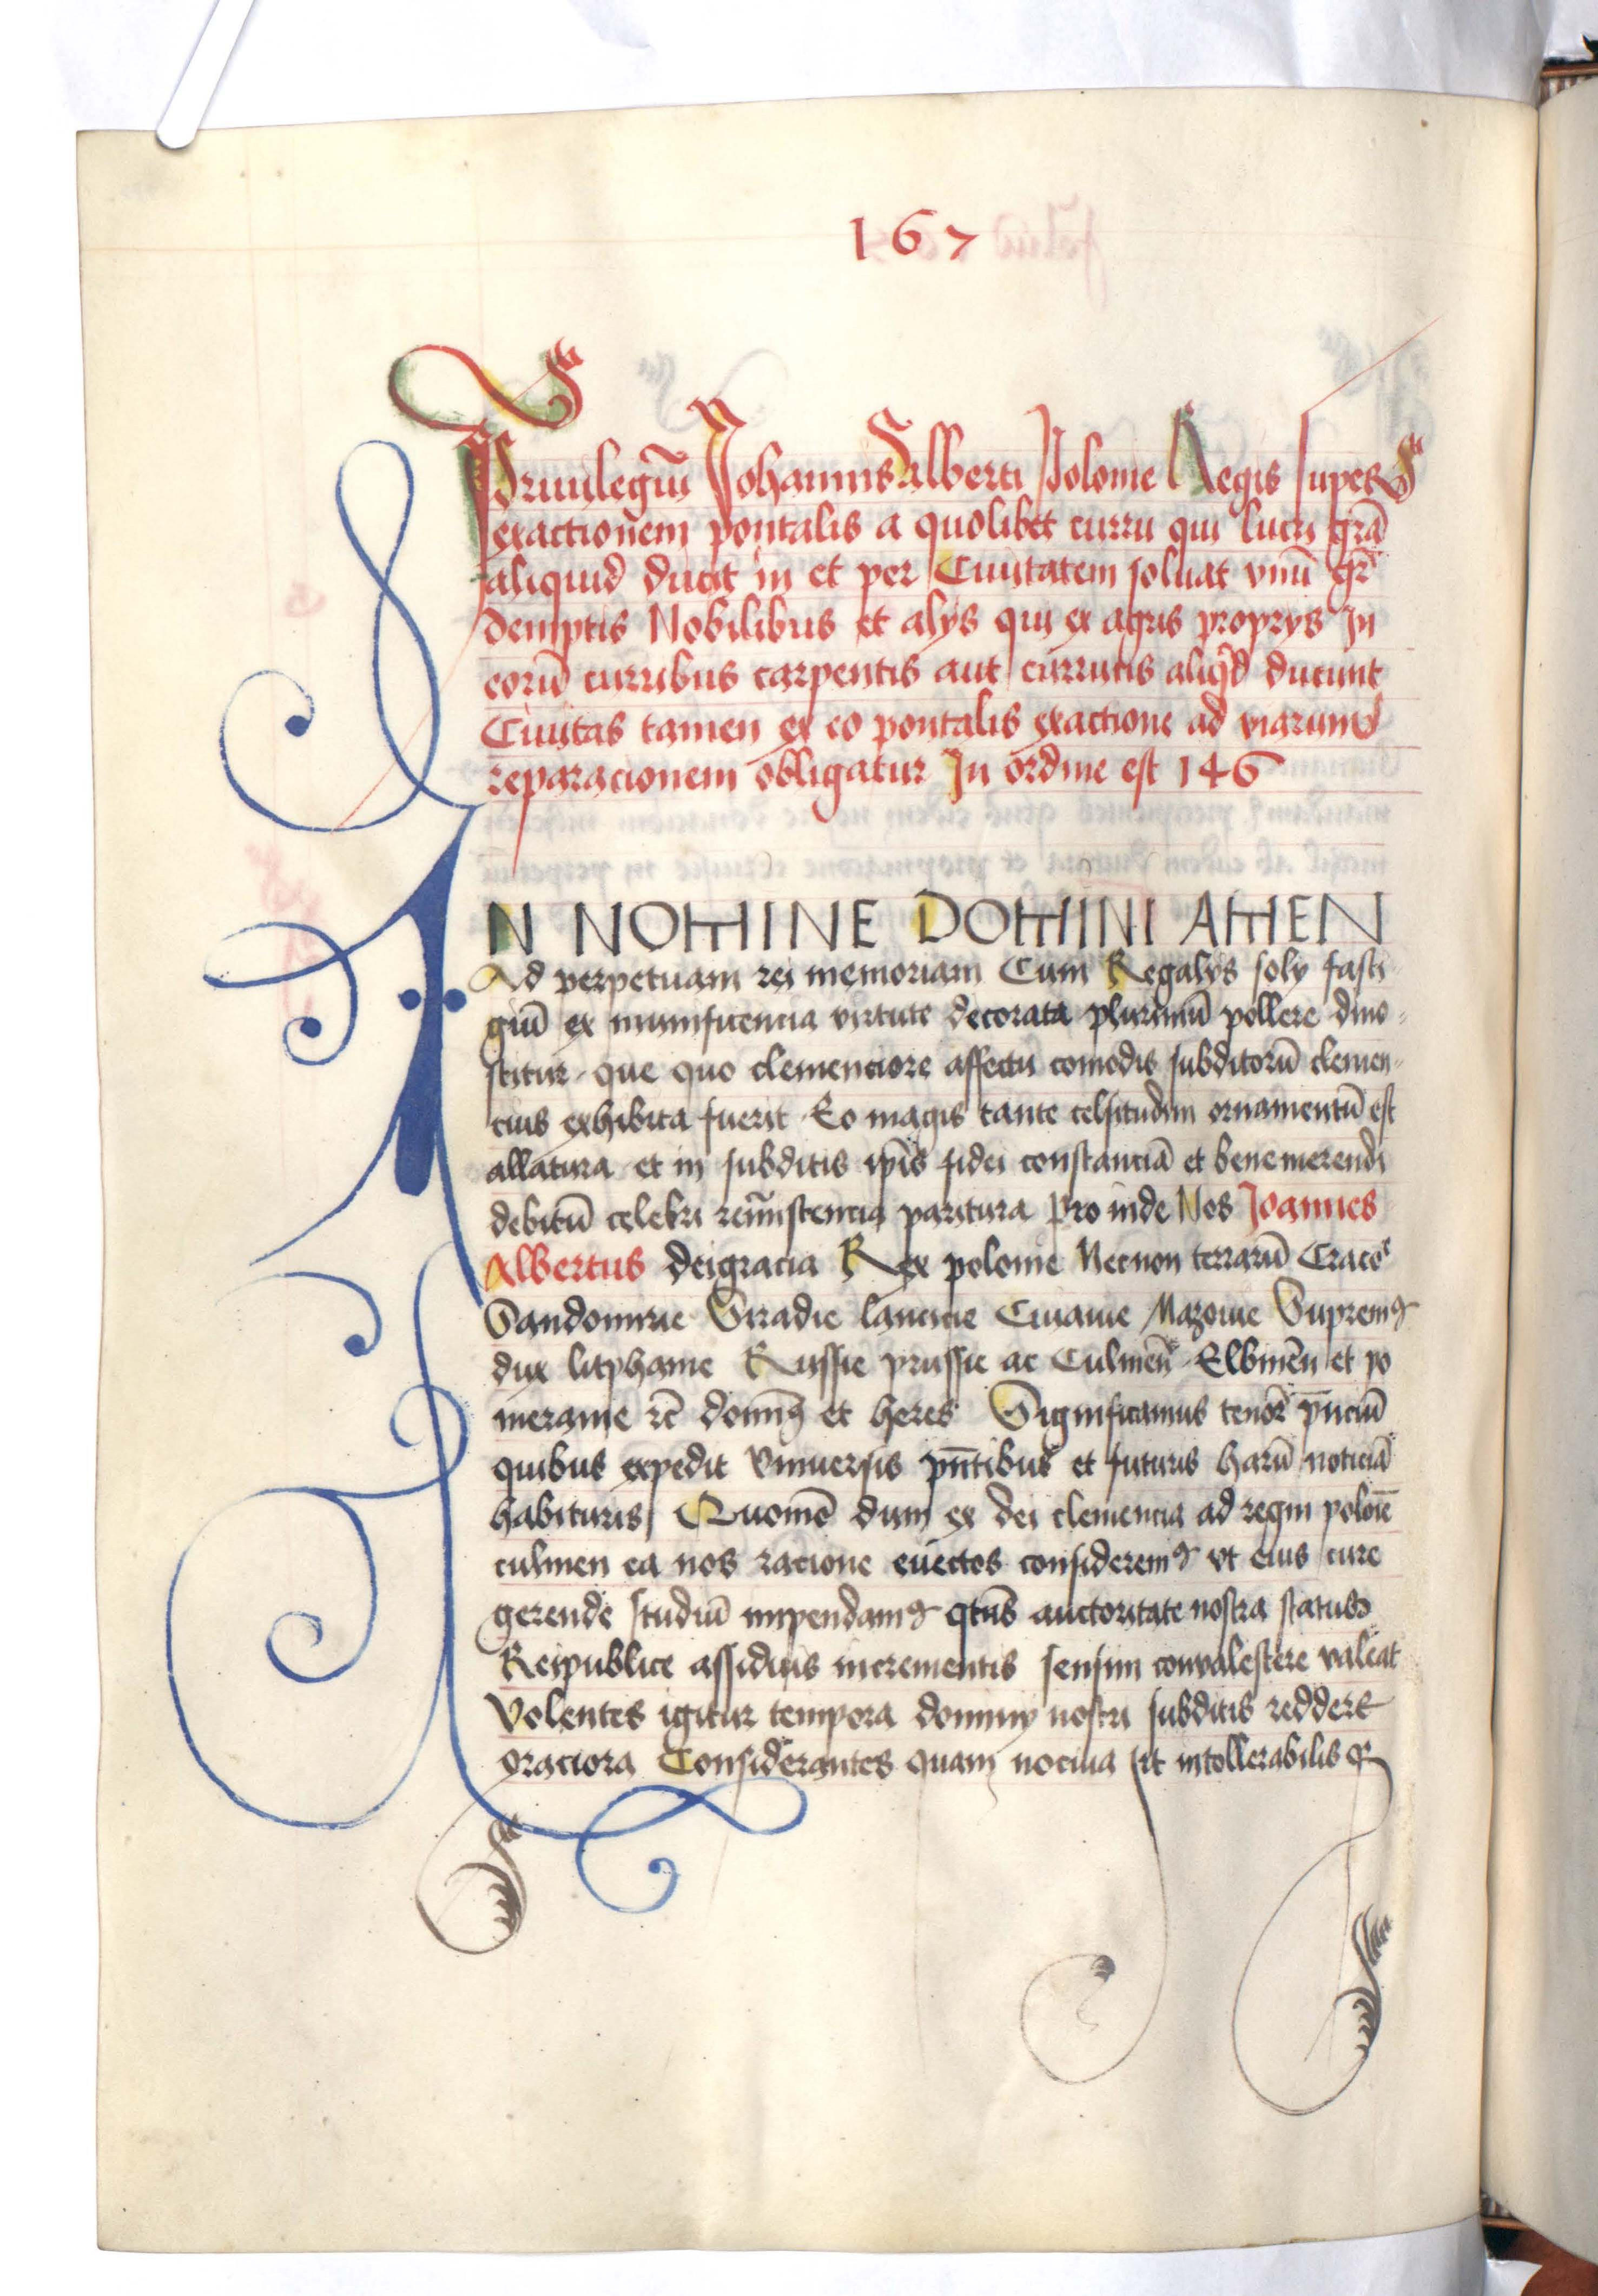 167
Priuilegiū Johannis Alberti Polonie Regis super
exactionem pontalis a quolibet curru qui lucri grā
aliquid ducit in et per Ciuitatem soluat vnū gr̄
demptis Nobilibus et alys qui ex agris proprys In
eorū curribus carpentis aut curruc̄is aliqd ducunt
Ciuitas tamen ex eo pontalis exactione ad viarum
reparacionem obligatur In ordine est 146
IN NOMINE DOMINI AMEN
Ad perpetuam rei memoriam Cum Regalys soly fasti
giū ex munificencia virtute decorata plurimū pollere dino
scitur que quo clemenciore affectu comodis subditorū clemen
cius exhibita fuerit Eo magis tante celsitudini ornamentū est
allatura et in subditis ip̄is fidei constanciā et benemerendi
debitū celebri reminiscencia paritura Pro inde Nos Joannes
Albertus deigracia Rex polonie Necnon terrarū Craco
Sandomirie Siradie lancicie Cuiauie Mazouie Supremꝰ
dux litphanie Russie prussie ac Culmeñ Elbineñ et po
meranie rc̄ dominꝰ et heres Significamus tenor̄ p̄nciū
quibus expedit Vniuersis pn̄tibus et futuris harū noticiā
habituris Quomō dum ex dei clemencia ad regni polonie
culmen ea nos racione euectos consideremꝰ vt eius cure
gerende studiū impendamꝰ qtn̄s auctoritate nostra status
Reipublice assiduis incrementis sensim conualescere valeat
Volentes igitur tempora dominy nostri subditis reddere
graciora Considerantes quam nociua sit intollerabilisqꝫ